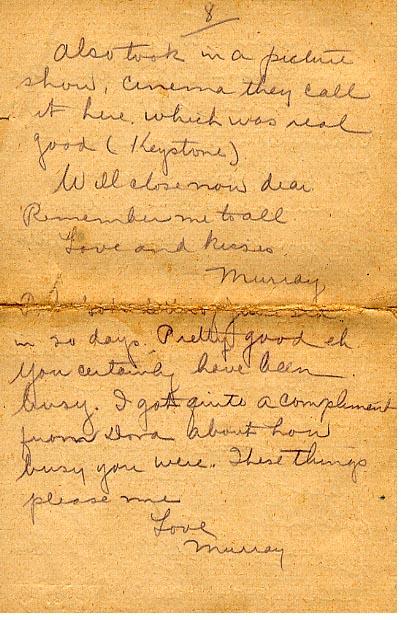 8
Also took in a picture
show, cinema they call
it here. which was real
good (Keystone)
Will close now dear
Remember me to all
Love and kisses
Murray
in 20 days. Pretty good eh
You certainly have been
busy. I got quite a compliment
from Dora about how
busy you were. These things
please me
Love
Murray